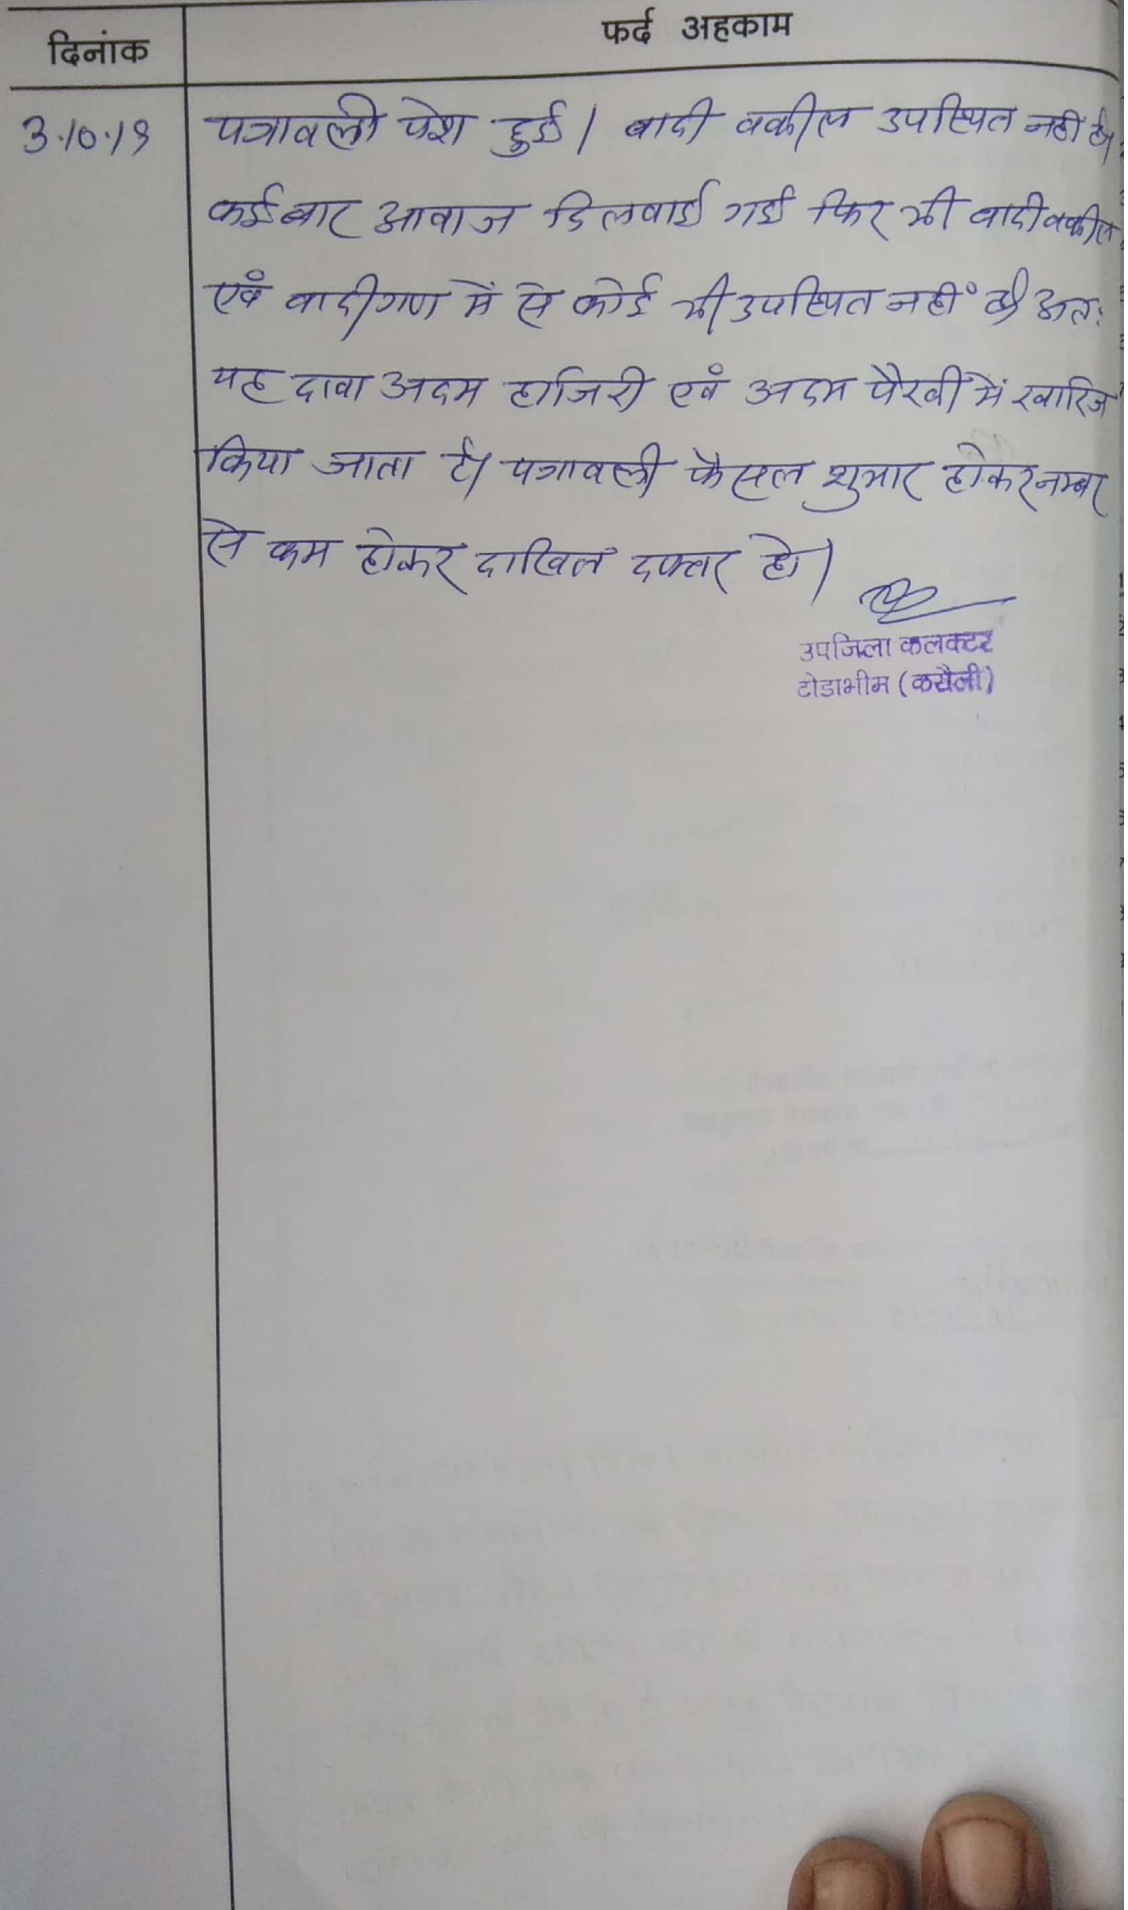 दिनांक
फर्द अहकाम
3.10.19
पत्रावली पेश हुई। वादी वकील उपस्थित नहीं है।
कई बार आवाज दिलवाई गई फिर भी वादी वकील
एवं वादीगण में से कोई भी उपस्थित नहीं है। अतः
यह दावा अदम हाजिरी एवं अदम पैरवी में खारिज
किया जाता है। पत्रावली फैसल शुमार होकर नम्बर
से कम होकर दाखिल दफ्तर हो।
उपजिला कलक्टर
टोडाभीम (करौली)